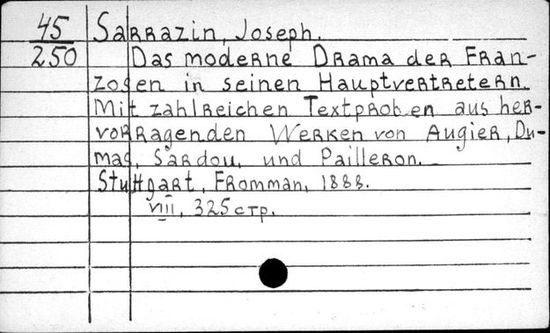 45 Sarrazin, Joseph.
250 Das moderne Drama der Fran-
zosen in seinen Hauptvertretern.
Mit zahlreichen Textproben aus her-
vorragenden Werken von Augier, Du-
mas, Sardou, und Pailleron.
Stuttgart, Fromman, 1888.
VIII, 325 стр.